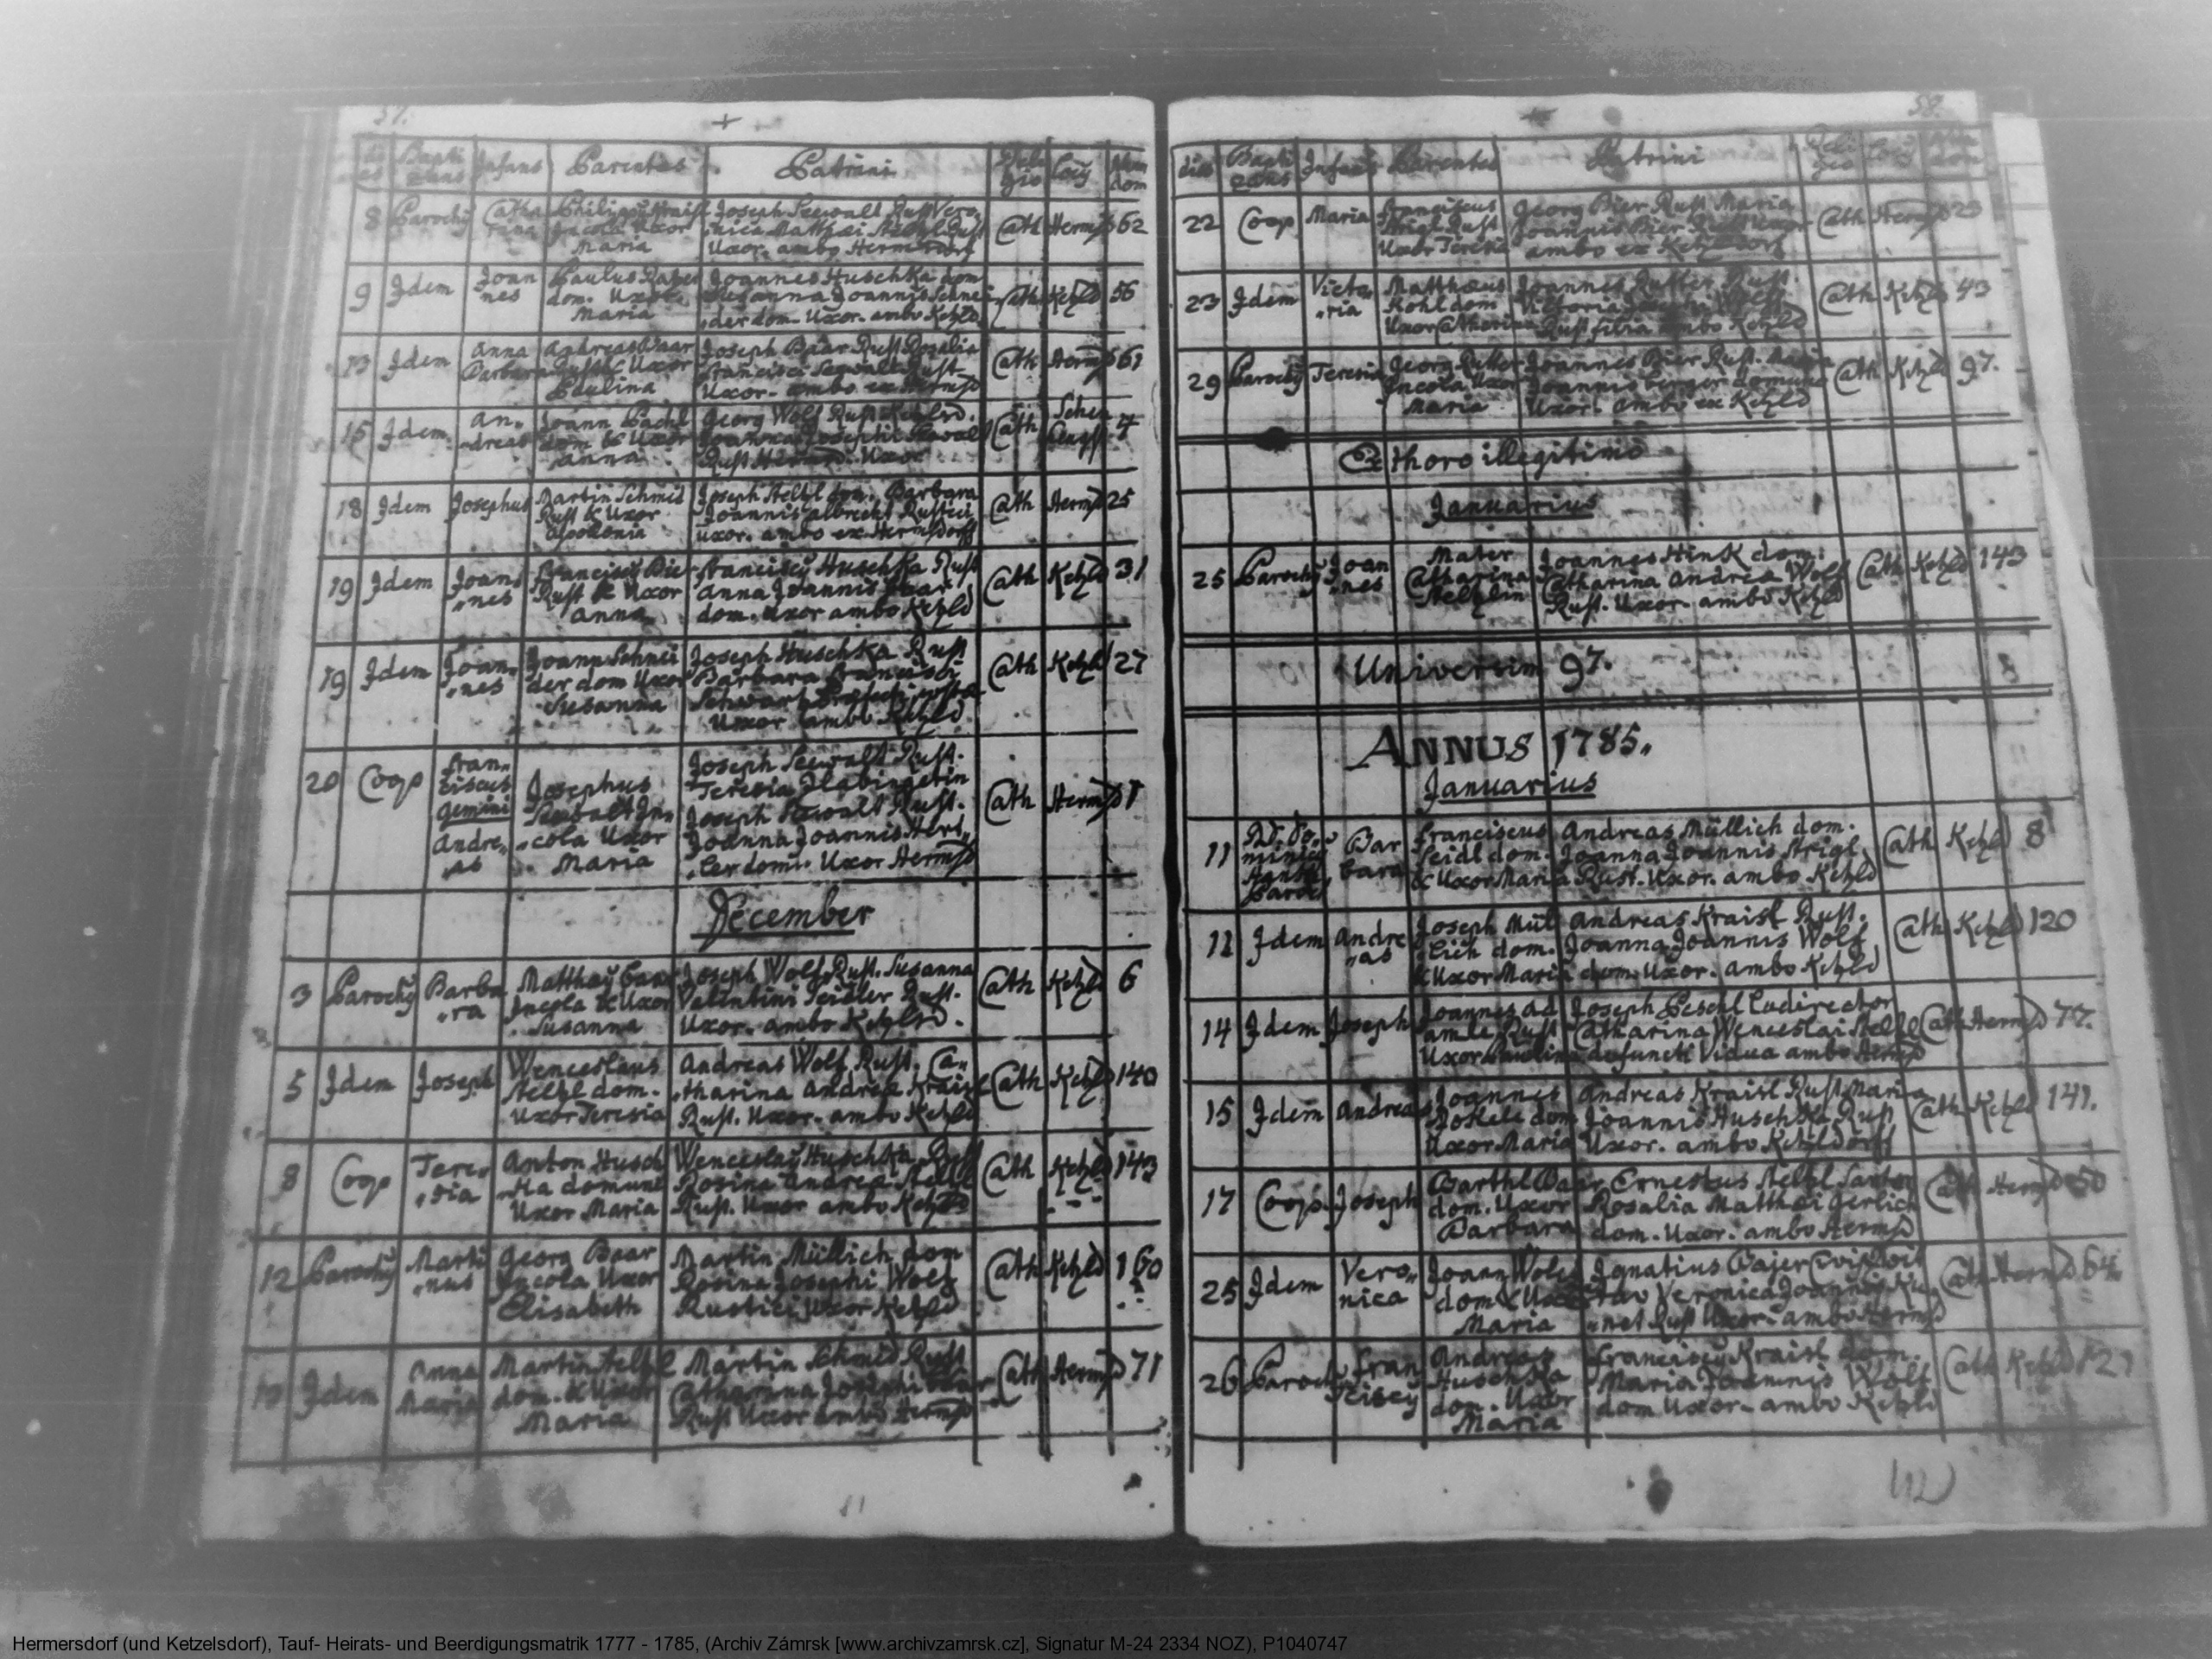 57.
di es Bapti zans Infans Parentes Patrini Reli gio Locy Num dom
8 Parochy Catha rina Philippy Kraisl Incola Uxor Maria Joseph Seewalt Rust Vero„
nica Matthaei Steltzl Rust
Uxor. ambo Hermsdorf Cath Hermsd 62
9 Idem Joan nes Paulus
dom. Uxor
Maria Joannes Huschka dom
Susanna Joannis Schnei
„der dom. Uxor. ambo Ketzld Cath Ketzld 56
13 Idem Anna Barbara Andreas Baar
Rust & Uxor
Paulina Joseph Baar Rust Rosalia
Francisci Seewalt Rust
Uxor. ambo ex Hermsd Cath Hermsd 61
15 Idem. An„
„dreas Joann Pachl
dom & Uxor
Anna Georg Wolf Rust Ketzlsd.
Joanna Josephi
Rust Hermsd. Uxor Cath 4
18 Idem Josephus Martin Schmid
Rust & Uxor
Apollonia Joseph Steltzl dom. Barbara
Joannis Albrecht Rustici
uxor. ambo ex Hermsdorff Cath Hermsd 25
19 Idem Joan„
„nes Franciscy Bier
Rust & Uxor
Anna Franciscy Huschka Rust
Anna Joannis Baar
dom. Uxor ambo Ketzld Cath Ketzld 31
19 Idem Joan„
„nes Joann Schnei
der dom Uxor
Susanna Joseph Huschka Rust
Barbara Francisci
Schwartz
Uxor ambo Ketzld. Cath Ketzld 27
20 Coop Fran„
ciscus
gemini
Andre„
„as Josephus
Seewalt In„
„cola Uxor
Maria Joseph Seewalt Rust.
Teresia
Joseph Seewalt Rust.
Joanna Joannis Hert„
„ler dom. Uxor Hermsd Cath Hermsd 1
December
3 Parochy Barba
„ra Matthay Baar
Incola & Uxor
Susanna Joseph Wolf Rust. Susanna
Valentini Seidler Rust.
Uxor. ambo Ketzlsd. Cath Ketzld 6
5 Idem Joseph Wenceslaus
Steltzl dom.
Uxor Teresia Andreas Wolf Rust. Ca„
„tharina Andrea Kraisl
Rust. Uxor. ambo Ketzld Cath Ketzld 140
8 Coop Tere„
„sia Anton Husch
„ka domunc
Uxor Maria Wenceslay Huschka Rust
Rosina Andrea Steltzl
Rust. Uxor ambo Ketzld Cath Ketzld 143
12 Parochy Marti
„nus Georg Baar
Incola Uxor
Elisabeth Martin Müllich dom
Rosina Josephi Wolf
Rustici Uxor Ketzld Cath Ketzld 160
Idem Anna
Maria Martin Steltzl
dom. & Uxor
Maria Martin Schmid Rust
Catharina Josephi Baar
Rust Uxor ambo Hermsd Cath Hermsd 71
58.
dies Bapti zans Infans Parentes Patrini Reli gio Locy Num dom
22 Coop Maria Franciscus
Strigl Rust
Uxor Teresia Georg Bier Rust Maria
Joannis Bier Rust Uxor
ambo ex Ketzlsdorf Cath Hermsd 23
23 Idem Victo„
„ria Matthaeus
Kohl dom
Uxor Catharina Joannes Rutter Rust
Victoria Wolf
Rust filia ambo Ketzld Cath Ketzld 43
29 Parochy Teresia Georg Rutter
Incola Uxor
Maria Joannes Bier Rust. Maria
Joannis Berger domunc
Uxor. ambo ex Ketzld Cath Ketzld 97.
Ex thoro illegitimo
Januarius
25 Parochy Joan
„nes Mater
Catharina
Steltzlin Joannes Hink dom.
Catharina Andrea Wolf
Rust. Uxor. ambo Ketzld Cath Ketzld 143
Universim 97.
ANNUS 1785.
Januarius
11 Bar
bara Franciscus
Seidl dom.
& Uxor Maria Andreas Müllich dom.
Joanna Joannis Strigl
Rust. Uxor. ambo Ketzld Cath Ketzld 8
12 Idem Andre
„as Joseph Mül
„lich dom.
& Uxor Maria Andreas Kraisl Rust.
Joanna Joannis Wolf
dom. Uxor. ambo Ketzld Cath Ketzld 120
14 Idem Joseph Joannes Ad
amle Rust
Uxor Paulina Joseph Peschl Ludirector
Catharina Wenceslai Steltzl
defuncti Vidua ambo Hermsd Cath Hermsd 77.
15 Idem Andreas Joannes
dom
Uxor Maria Andreas Kraisl Rust Maria
Joannis Huschka Rust
Uxor. ambo Ketzldorff Cath Ketzld 141.
17 Coop. Joseph Barthl Baar
dom. Uxor
Barbara Ernestus Steltzl Sartor
Rosalia Matthaei Gerlich
dom. Uxor. ambo Hermsd Cath Hermsd 50
25 Idem Vero„
nica Joann Wolf
dom & Uxor
Maria Ignatius Bajer
Veronica Joannis Ku„
„net Rust Uxor. ambo Hermsd Cath Hermsd 64.
26 Paroch Fran
ciscy Andreas
Huschka
dom. Uxor
Maria Franciscy Kraisl dom.
Maria Joannis Wolf
dom Uxor. ambo Ketzld Cath Ketzld 121
Hermersdorf (und Ketzelsdorf), Tauf- Heirats- und Beerdigungsmatrik 1777 - 1785, (Archiv Zámrsk [www.archivzamrsk.cz], Signatur M-24 2334 NOZ), P1040747